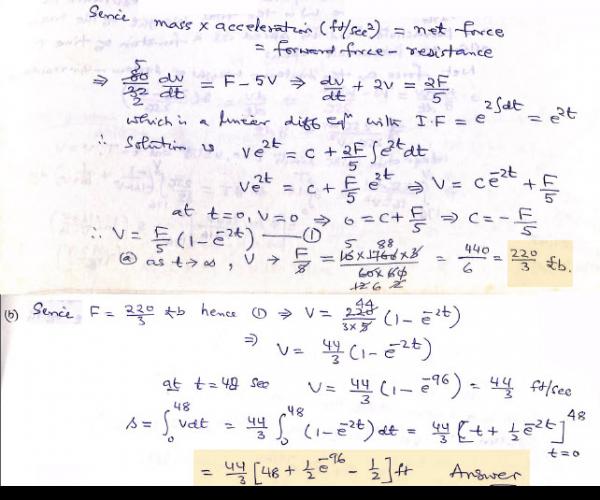 Sence mass x acceleration (ft/sec²) = net force
= forward force - resistance
⇒ 5 80/32 2 dv/dt = F - 5V ⇒ dv/dt + 2V = 2F/5
which is a linear diff eqⁿ with I.F = e^{2∫dt} = e^{2t}
∴ Solution is Ve^{2t} = C + 2F/5 ∫e^{2t}dt
Ve^{2t} = C + F/5 e^{2t} ⇒ V = Ce^{-2t} + F/5
at t=0, V=0 ⇒ 0 = C + F/5 ⇒ C = -F/5
∴ V = F/5 (1-e^{-2t}) — ①
ⓐ as t→∞, V → F/5 = 5 88 10x1760x3 / 60x60 12 6 2 = 440/6 = 220/3 lb.
(b) Sence F = 220/3 lb hence ① ⇒ V = 44 220/3x5 (1-e^{-2t})
⇒ V = 44/3 (1-e^{-2t})
at t=48 sec V = 44/3 (1-e^{-96}) = 44/3 ft/sec
s = ∫₀^{48} Vdt = 44/3 ∫₀^{48} (1-e^{-2t}) dt = 44/3 [t + 1/2 e^{-2t}]^{48}_{t=0}
= 44/3 [48 + 1/2 e^{-96} - 1/2] ft Answer